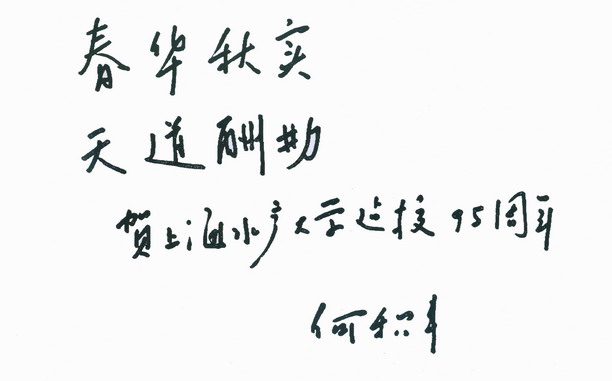 春华秋实
天道酬勤
贺上海水产大学建校95周年
何积丰